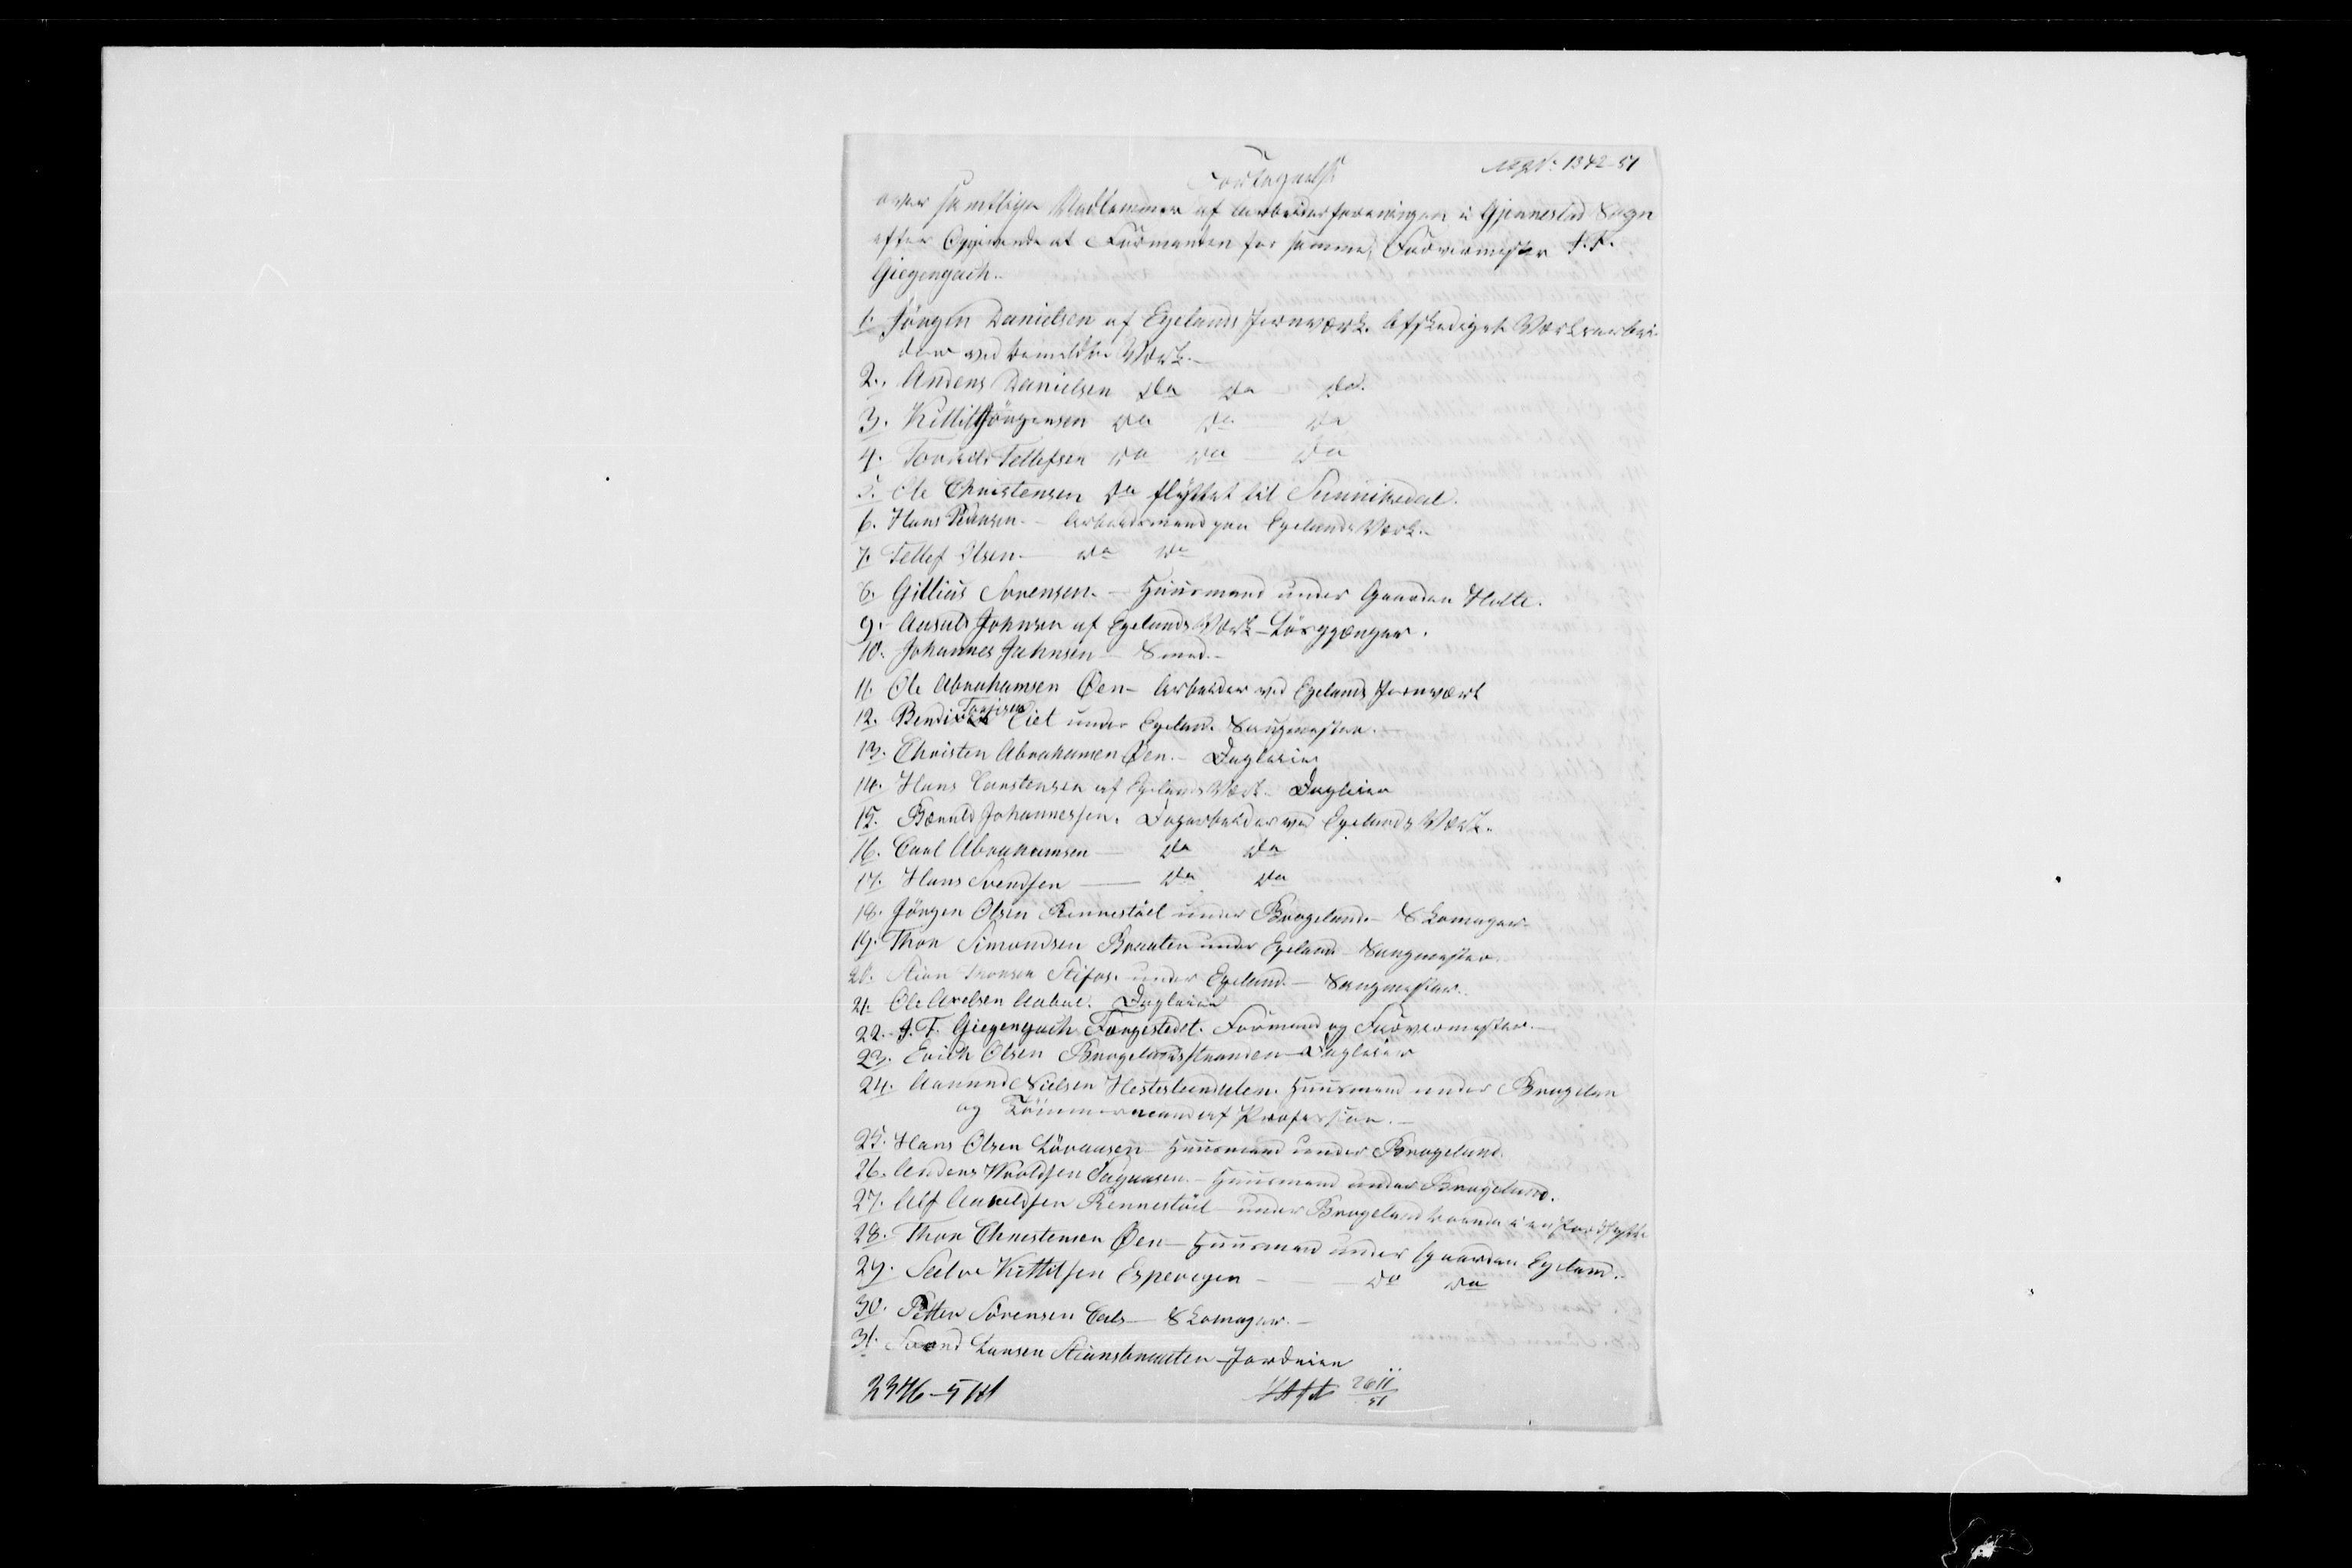 1342-51
Fortegnelse
over samtlige Medlemmer af Arbeiderforeningen i Gjernestad Sogn
efter Opgivende af Formanden for samme, Farvermester J. F.
Giegengach.
1. Jörgen Danielsen af Egelands Jernværk. Afskediget Værksarbei-
der ved bemeldte Værk.
2. Anders Danielsen Do Do Do.
3. Kittil Jörgensen Do Do Do
4. Tellefsen Do Do Do
5. Ole Christensen Do flyttet til Sannikedal.
6. Hans Pedersen. - Arbeidsmand paa Egelands Værk.
7. Tellef Olsen - Do Do
8. Gillius Sorensen. - Huusmand under Gaarden Holte.
9. Aasuld Johnsen af Egelands Værk - Lösgjænger.
10. Johannes Jahnsen - Smed. -
11. Ole Abrahamsen Øen - Arbeider ved Egelands Jernværk
12. Bendix Torjisen Eiet under Egeland. Saugmester.
13. Christen Abrahamsen Øen. - Dagleier
14. Hans Carstensen af Egelands Værk. Dagleier
15. Johannessen. Dagarbeider ved Egelands Værk.
16. Carl Abrahamsen - Do Do
17. Hans Svendsen - Do Do
18. Jörgen Olsen Rennestöel under Brogeland. - Skomager.
19. Thor Simondsen Braaten under Egeland - Saugmester
20. Stian Thorsen Stifos. under Egeland. - Saugmester.
21. Ole Axelsen Aabøe. Dagleier
22. J. F. Giegengach Tangistedt. Formand og Farvermester. -
23. Erich Olsen Brogelandsstranden - Dagleier
24. Aanund Nielsen Huusmand under Brogeland
og Tömmermand af Profession. -
25. Hans Olsen Lövaasen - Huusmand under Brogeland.
26. Anders Wroldsen - Huusmand under Brogeland.
27. Alf Aaveldsen Rennestöel - under Brogeland
28. Thor Christensen Øen - Huusmand under Gaarden Egeland.
29. Kittilsen Espevigen - Do Do
30. Petter Sörensen Eels - Skomager. -
31. Svend Larsen Stiansbraaten - Jordeier
2346-5
51